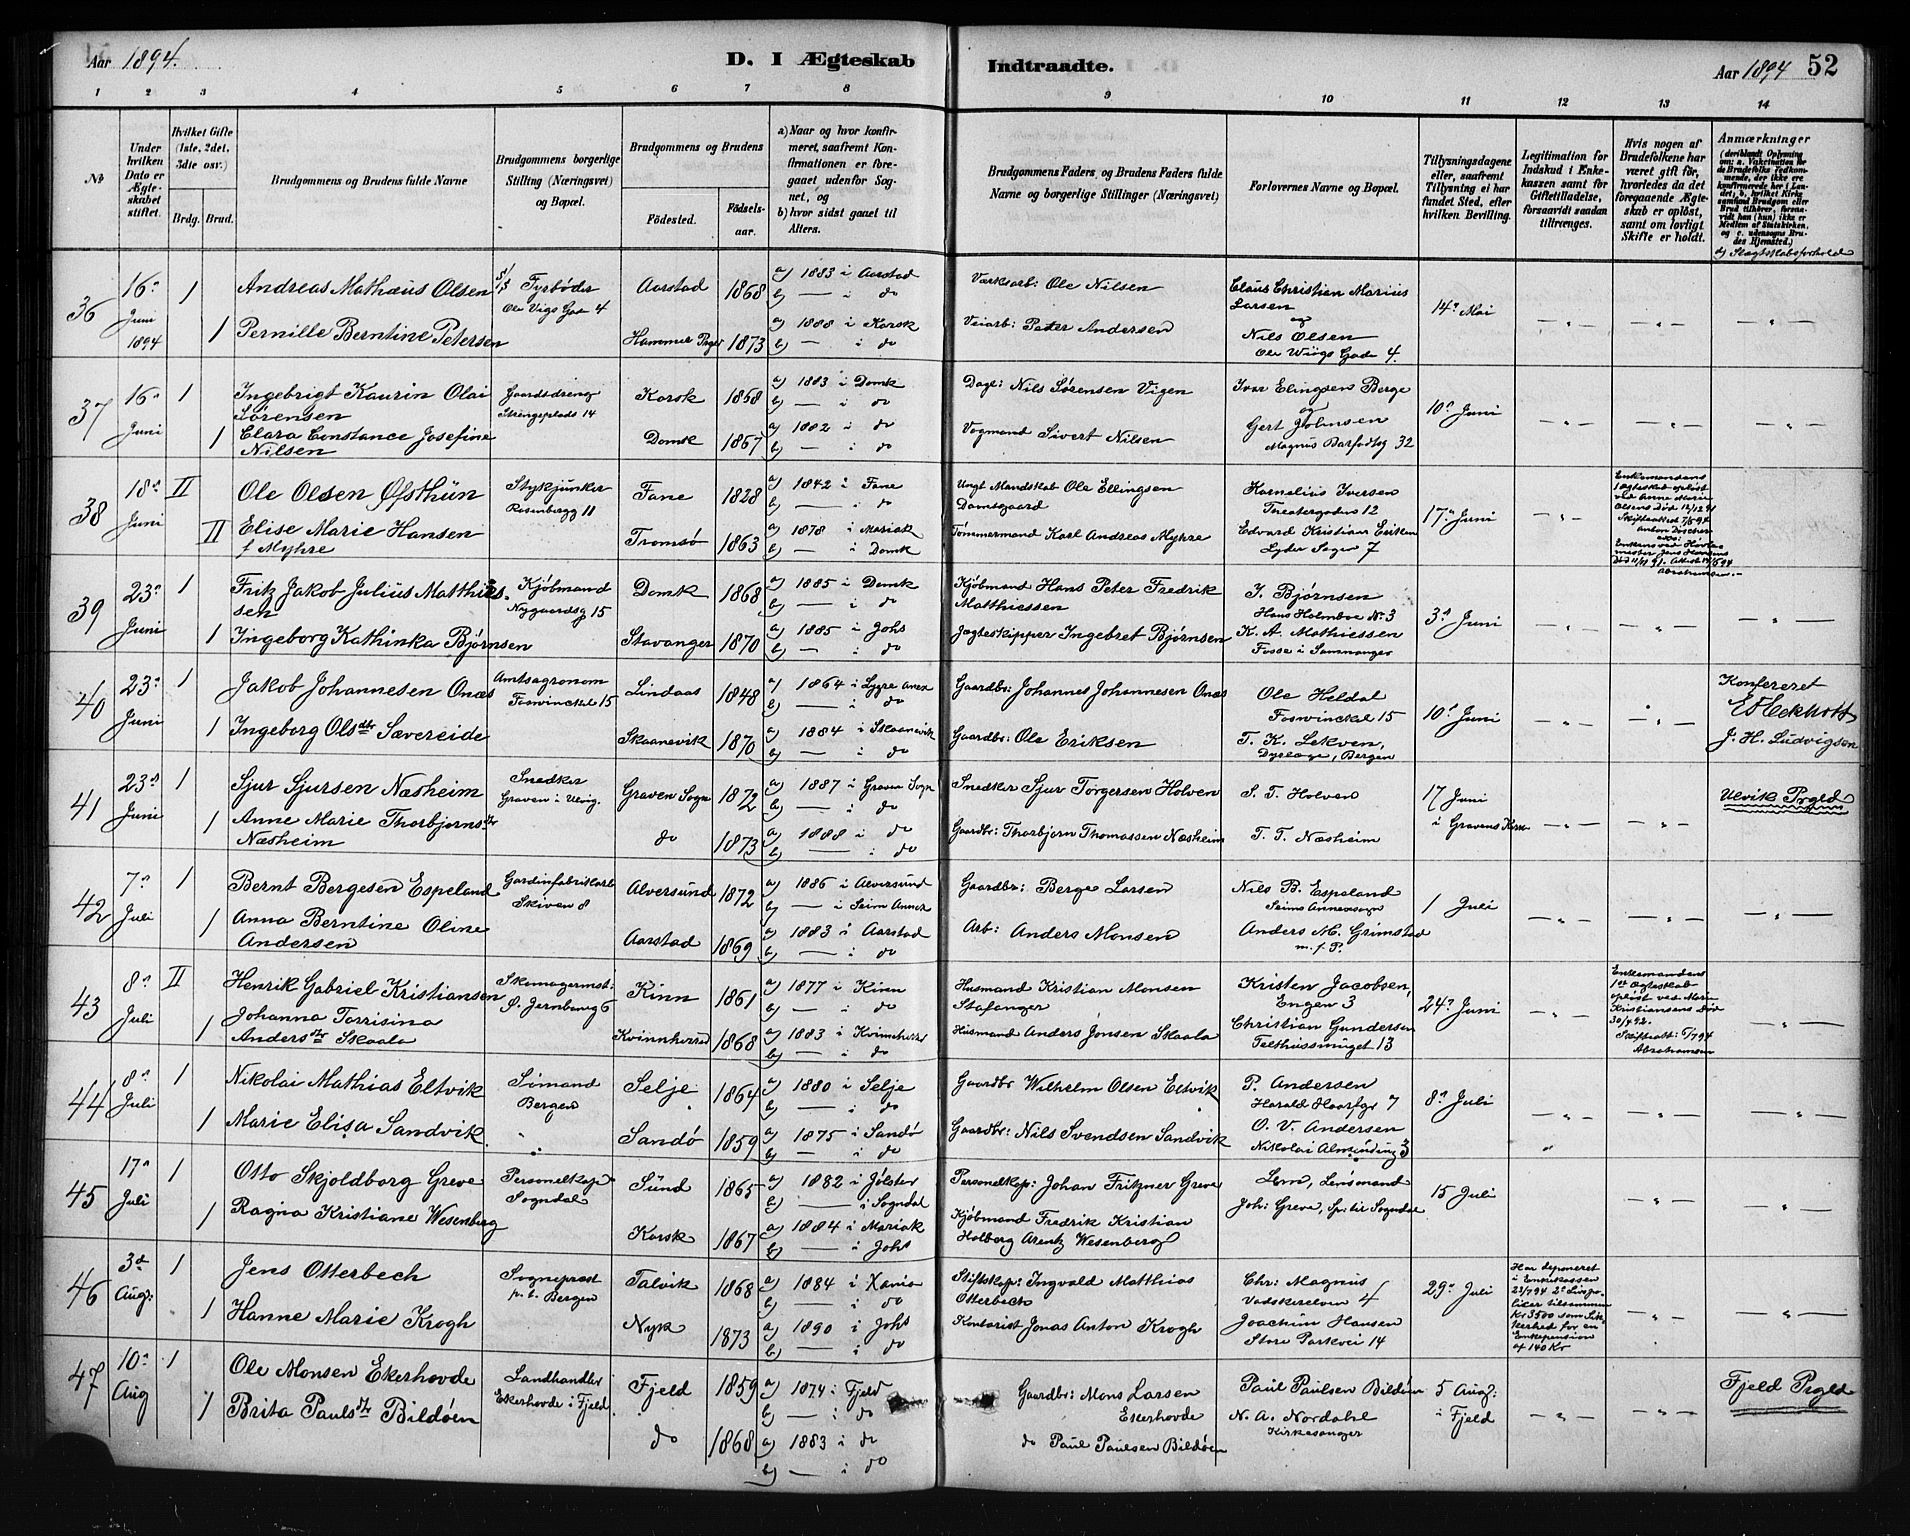 Aar 1894.
D. I Ægteskab Indtraadte.
Aar 1894 52
1 2 3 4 5 6 7 8 9 10 11 12 13 14
No
Under hvilken Dato er Ægteskabet stiftet.
Hvilket Gifte (1ste, 2det, 3die osv.)
Brdg. Brud.
Brudgommens og Brudens fulde Navne
Brudgommens borgerlige Stilling (Næringsvei) og Bopæl.
Brudgommens og Brudens
Födested.
Födselsaar.
a) Naar og hvor konfirmeret, saafremt Konfirmationen er foregaaet udenför Sognet, og
b) hvor sidst gaaet til Alters.
Brudgommens Faders, og Brudens Faders fulde Navne og borgerlige Stillinger (Næringsvei)
Forlovernes Navne og Bopæl.
Tillysningsdagene eller, saafremt Tillysning ei har fundet Sted, efter hvilken Bevilling.
Legitimation for Indskud i Enkekassen samt for Giftetilladelse, forsaavidt saadan tiltrænges.
Hvis nogen af Brudefolkene har været gift för, hvorledes da det foregaaende Ægteskab er oplöst, samt om lovligt Skifte er holdt.
Anmærkninger
(deriblandt Oplysning om: a. Vaccination for de Brudefolks Vedkommende, der ikke ere konfirmerede her i Landet; b. hvilket Kirkesamfund Brudgom eller Brud tilhører, forsaavidt han (hun) ikke er Medlem af Statskirken, og c. udensogns Brudes Hjemsted.)
d) Slægtskabsforhold
36 16de Juni 1894 1 Andreas Mathæus Olsen Fyrbøder Ole Vigs Gade 4 Aarstad 1868 a) 1883 i Aarstad b) — i do Værksarb: Ole Nilsen Claus Christian Marius Larsen 14de Mai
1 Pernille Berntine Petersen Hammer Prgld 1873 a) 1888 i Korsk b) — i do Veiarb: Peder Andersen og Nils Olsen Ole Wiigs Gade 4.
37 16de Juni 1 Ingebrigt Kaurin Olai Sørensen Gaardsdreng Strangeplads 14 Korsk 1868 a) 1883 i Domk b) — i do Dagl: Nils Sørensen Vigen Ivar Elingsen Berge 10de Juni
1 Clara Constance Josefine Nilsen Domk 1867 a) 1882 i do b) — i do Vogmand Sivert Nilsen og Gert Johnsen Magnus Barfodsg 32
38 18de Juni II Ole Olsen Øfsthün Stykjunker Rosenbergg 11 Fane 1828 a) 1842 i Fane b) — i do Ungt Mandskab Ole Ellingsen Damsgaard Kornelius Iversen Theatergaden 12 17de Juni Enkemandens 1 ægteskab opløst ved Anne Marie Olsens Død 12/12 91
II Elise Marie Hansen f Myhre Tromsø 1863 a) 1878 i Mariak b) — i Domk Tømmermand Karl Andreas Myhre Edvard Kristian Eriksen Lyder Sagen 7
39 23de Juni 1 Fritz Jakob Julius Matthiessen Kjøbmand Nygaardsg 15 Domk 1868 a) 1885 i Domk b) — i do Kjøbmand Hans Peter Fredrik Matthiessen J. Bjørnsen Hans Holmboe No 3 3de Juni
1 Ingeborg Kathinka Bjørnsen Stavanger 1870 a) 1885 i Johs b) — i do Jagteskipper Ingebret Bjørnsen K. A. Mathiessen Fosse i Sammanger
40 23de Juni 1 Jakob Johannesen Onæs Amtsagronom Foswinckel 15 Lindaas 1848 a) 1864 i Lygre Anex b) — i do Gaardbr: Johannes Johannesen Onæs Ole Heldal Foswinckel 15 10de Juni Konfereret
1 Ingeborg Olsdtr Sævereide Skaanevik 1870 a) 1884 i Skaanevik b) — i do Gaardbr: Ole Eriksen T. K. Lekven, Dyrlæge, Bergen J. H. Ludvigsen
41 23de Juni 1 Sjur Sjursen Næsheim Snedker Graven i Ulvig. Graven Sogn 1872 a) 1887 i Graven Sogn b) — i do Snedker Sjur Torgersen Holven S. T. Holven 17 Juni i Gravens Kirke Ulvik Prgld
1 Anne Marie Thorbjørnsdtr Næsheim do 1873 a) 1888 i do b) — i do Gaardbr: Thorbjørn Thomassen Næsheim T. T. Næsheim
42 7de Juli 1 Bernt Bergesen Espeland Gardinfabrikarb Skiven 8 Alversund 1872 a) 1886 i Alversund b) — i Seim Annex Gaardbr: Berge Larsen Nils B. Espeland Seims Annexsogn 1 Juli
1 Anna Berntine Oline Andersen Aarstad 1869 a) 1883 i Aarstad b) — i do Arb: Anders Monsen Anders M. Grimstad m. f. P.
43 8de Juli II Henrik Gabriel Kristiansen Skomagermst: Ø. Jernbaneg 6 Kinn 1861 a) 1877 i Kinn b) — i do Husmand Kristian Monsen Stafanger Kristen Jacobsen, Engen 3 24de Juni Enkemandens 1ste ægteskab opløst ved Marie Kristiansens Død 30/4 92. Skifteatt: 6/7 94 Abrahamsen
1 Johanna Torrisina Andersdtr Skaala Kvinnherred 1868 a) 1883 i Kvinnherred b) — i do Husmand Anders Jonsen Skaala Christian Gundersen Telthussmuget 13
44 8de Juli 1 Nikolai Mathias Eltvik Sømand Bergen Selje 1864 a) 1880 i Selje b) — i do Gaardbr Wilhelm Olsen Eltvik P. Andersen Harald Haarfgr 7 8de Juli
1 Marie Elisa Sandvik. Sandø 1859 a) 1875 i Sandø b) — i do Gaardbr: Nils Svendsen Sandvik O. V. Andersen Nikolai Almending 3
45 17de Juli 1 Otto Skjoldborg Greve Personelkap Sogndal Sünd 1865 a) 1882 i Jølster b) — i Sogndal Personelkap: Johan Fritzner Greve Lem, Lensmand 15 Juli
1 Ragna Kristiane Wesenberg Korsk 1867 a) 1884 i Mariak b) — i Johs Kjøbmand Fredrik Kristian Holberg Arentz Wesenberg Joh: Greve, Spr: til Sogndal
46 3de Aug: 1 Jens Otterbech Sogneprest p. t. Bergen Talvik 1868 a) 1884 i Xania b) — i do Stiftskap: Ingvald Matthias Otterbech Chr: Magnus Vadskerelven 4 29de Juli Har deponeret i Enkekassen 23/7 94 2de Livspolicer tilsammen Kr 3500 som Sikkerhed for en Enkepension af 140 Kr
1 Hanne Marie Krogh Nyk 1873 a) 1890 i Johs b) — i do Kontorist Jonas Anton Krogh Joachim Hansen Store Parkvei 14
47 10de Aug 1 Ole Monsen Ekerhovde Landhandler Ekerhovde i Fjeld Fjeld 1859 a) 1874 i Fjeld b) — i do Gaardbr: Mons Larsen Ekerhovde Paul Paulsen Bildøen 5 Aug: i Fjeld Fjeld Prgld
1 Brita Paulsdtr Bildøen do 1868 a) 1883 i do b) — i do do Paul Paulsen Bildøen N. A. Nordahl Kirkesanger